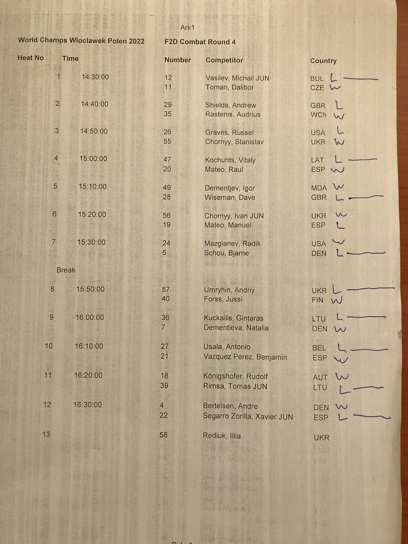 Ark1
World Champs Wloclawek Polen 2022 F2D Combat Round 4
Heat No Time Number Competitor Country
1 14:30:00 12 Vasilev, Michail JUN BUL L
11 Toman, Dalibor CZE W
2 14:40:00 29 Shields, Andrew GBR L
35 Rastenis, Audrius WCh W
3 14:50:00 26 Graves, Russel USA L
55 Chornyy, Stanislav UKR W
4 15:00:00 47 Kochunts, Vitaly LAT L
20 Mateo, Raul ESP W
5 15:10:00 49 Dementjev, Igor MDA W
28 Wiseman, Dave GBR L
6 15:20:00 56 Chornyy, Ivan JUN UKR W
19 Mateo, Manuel ESP L
7 15:30:00 24 Mazgianev, Radik USA W
5 Schou, Bjarne DEN L
Break
8 15:50:00 57 Umryhin, Andriy UKR L
40 Forss, Jussi FIN W
9 16:00:00 36 Kuckailis, Gintaras LTU L
7 Dementieva, Natalia DEN W
10 16:10:00 27 Usala, Antonio BEL L
21 Vazquez Perez, Benjamin ESP W
11 16:20:00 18 Königshofer, Rudolf AUT W
39 Rimsa, Tomas JUN LTU L
12 16:30:00 4 Bertelsen, Andre DEN W
22 Segarro Zorilla, Xavier JUN ESP L
13 58 Rediuk, Illia UKR